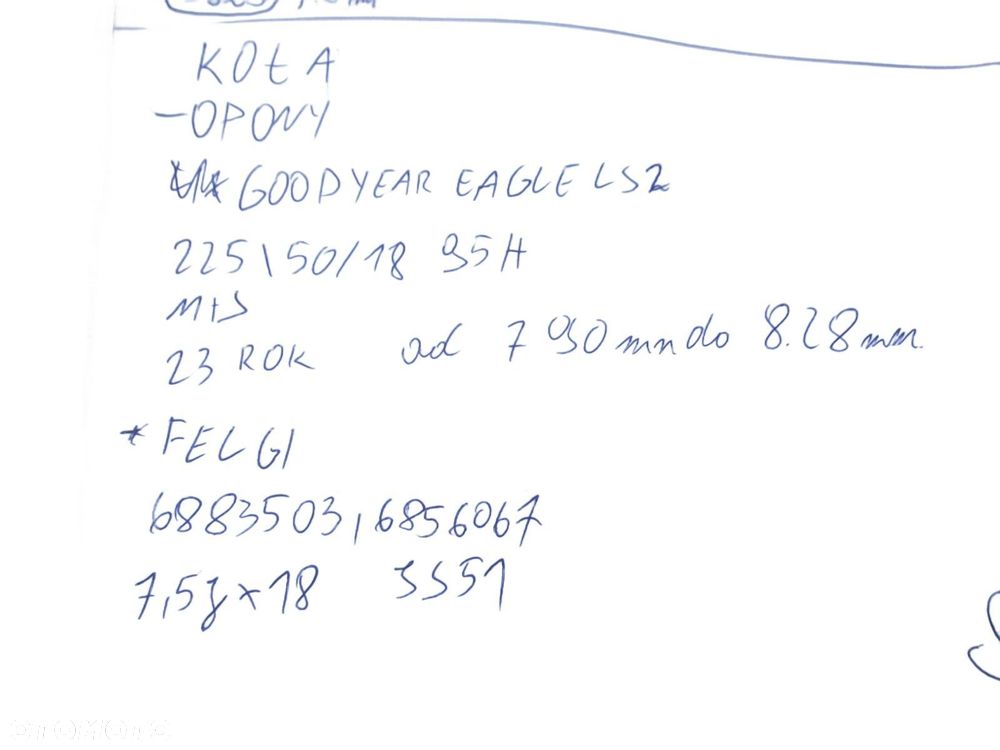 KOŁA
-OPONY
GOODYEAR EAGLE LS2
225\50/18 95H
M+S
23 ROK od 7 90mm do 8.28mm
* FELGI
6883503, 6856067
7,5J x 18 3S51
OTOMOTO